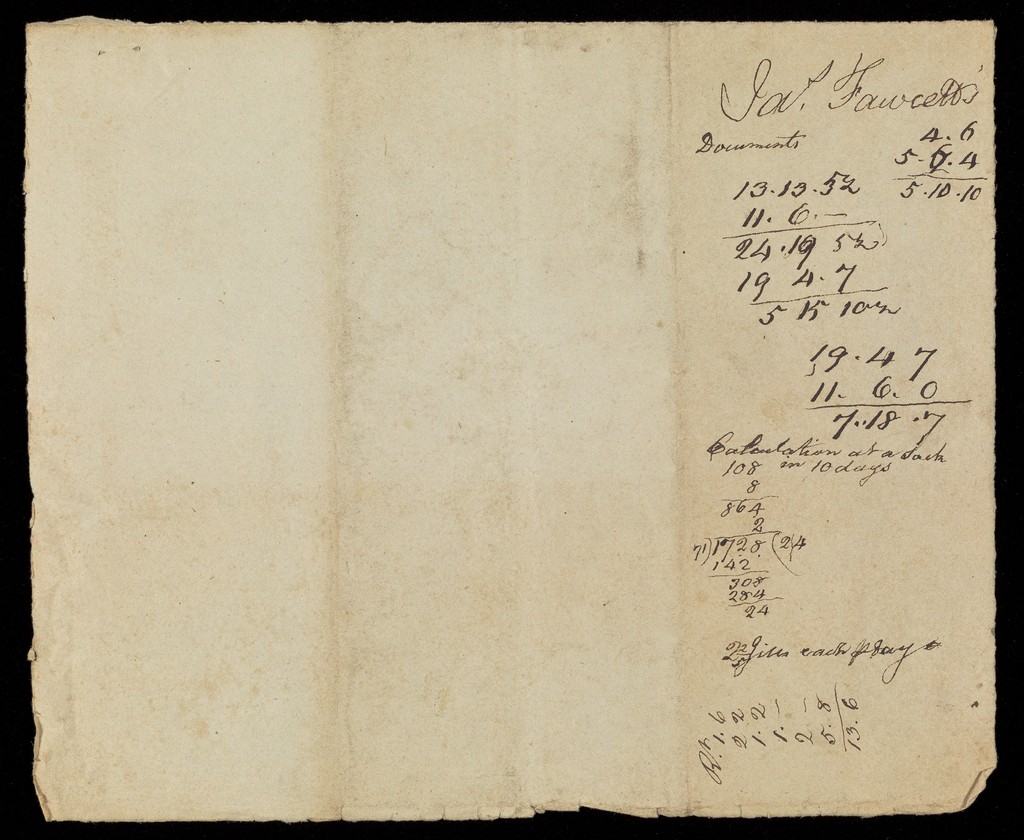 Jas. Fawcett's
Documents
4.6
5.6.4
5.10.10
13.13.5½
11.6.—
24.19 5½
19 4.7
5 15 10½
19.4 7
11.6.0
7.18.7
Calculation at a Sack
108 in 10 days
8
864
2
71)1728(24
142
308
284
24
Gills each day
1.6
2.2
1.2
1.—
2 —
5.8
13.6